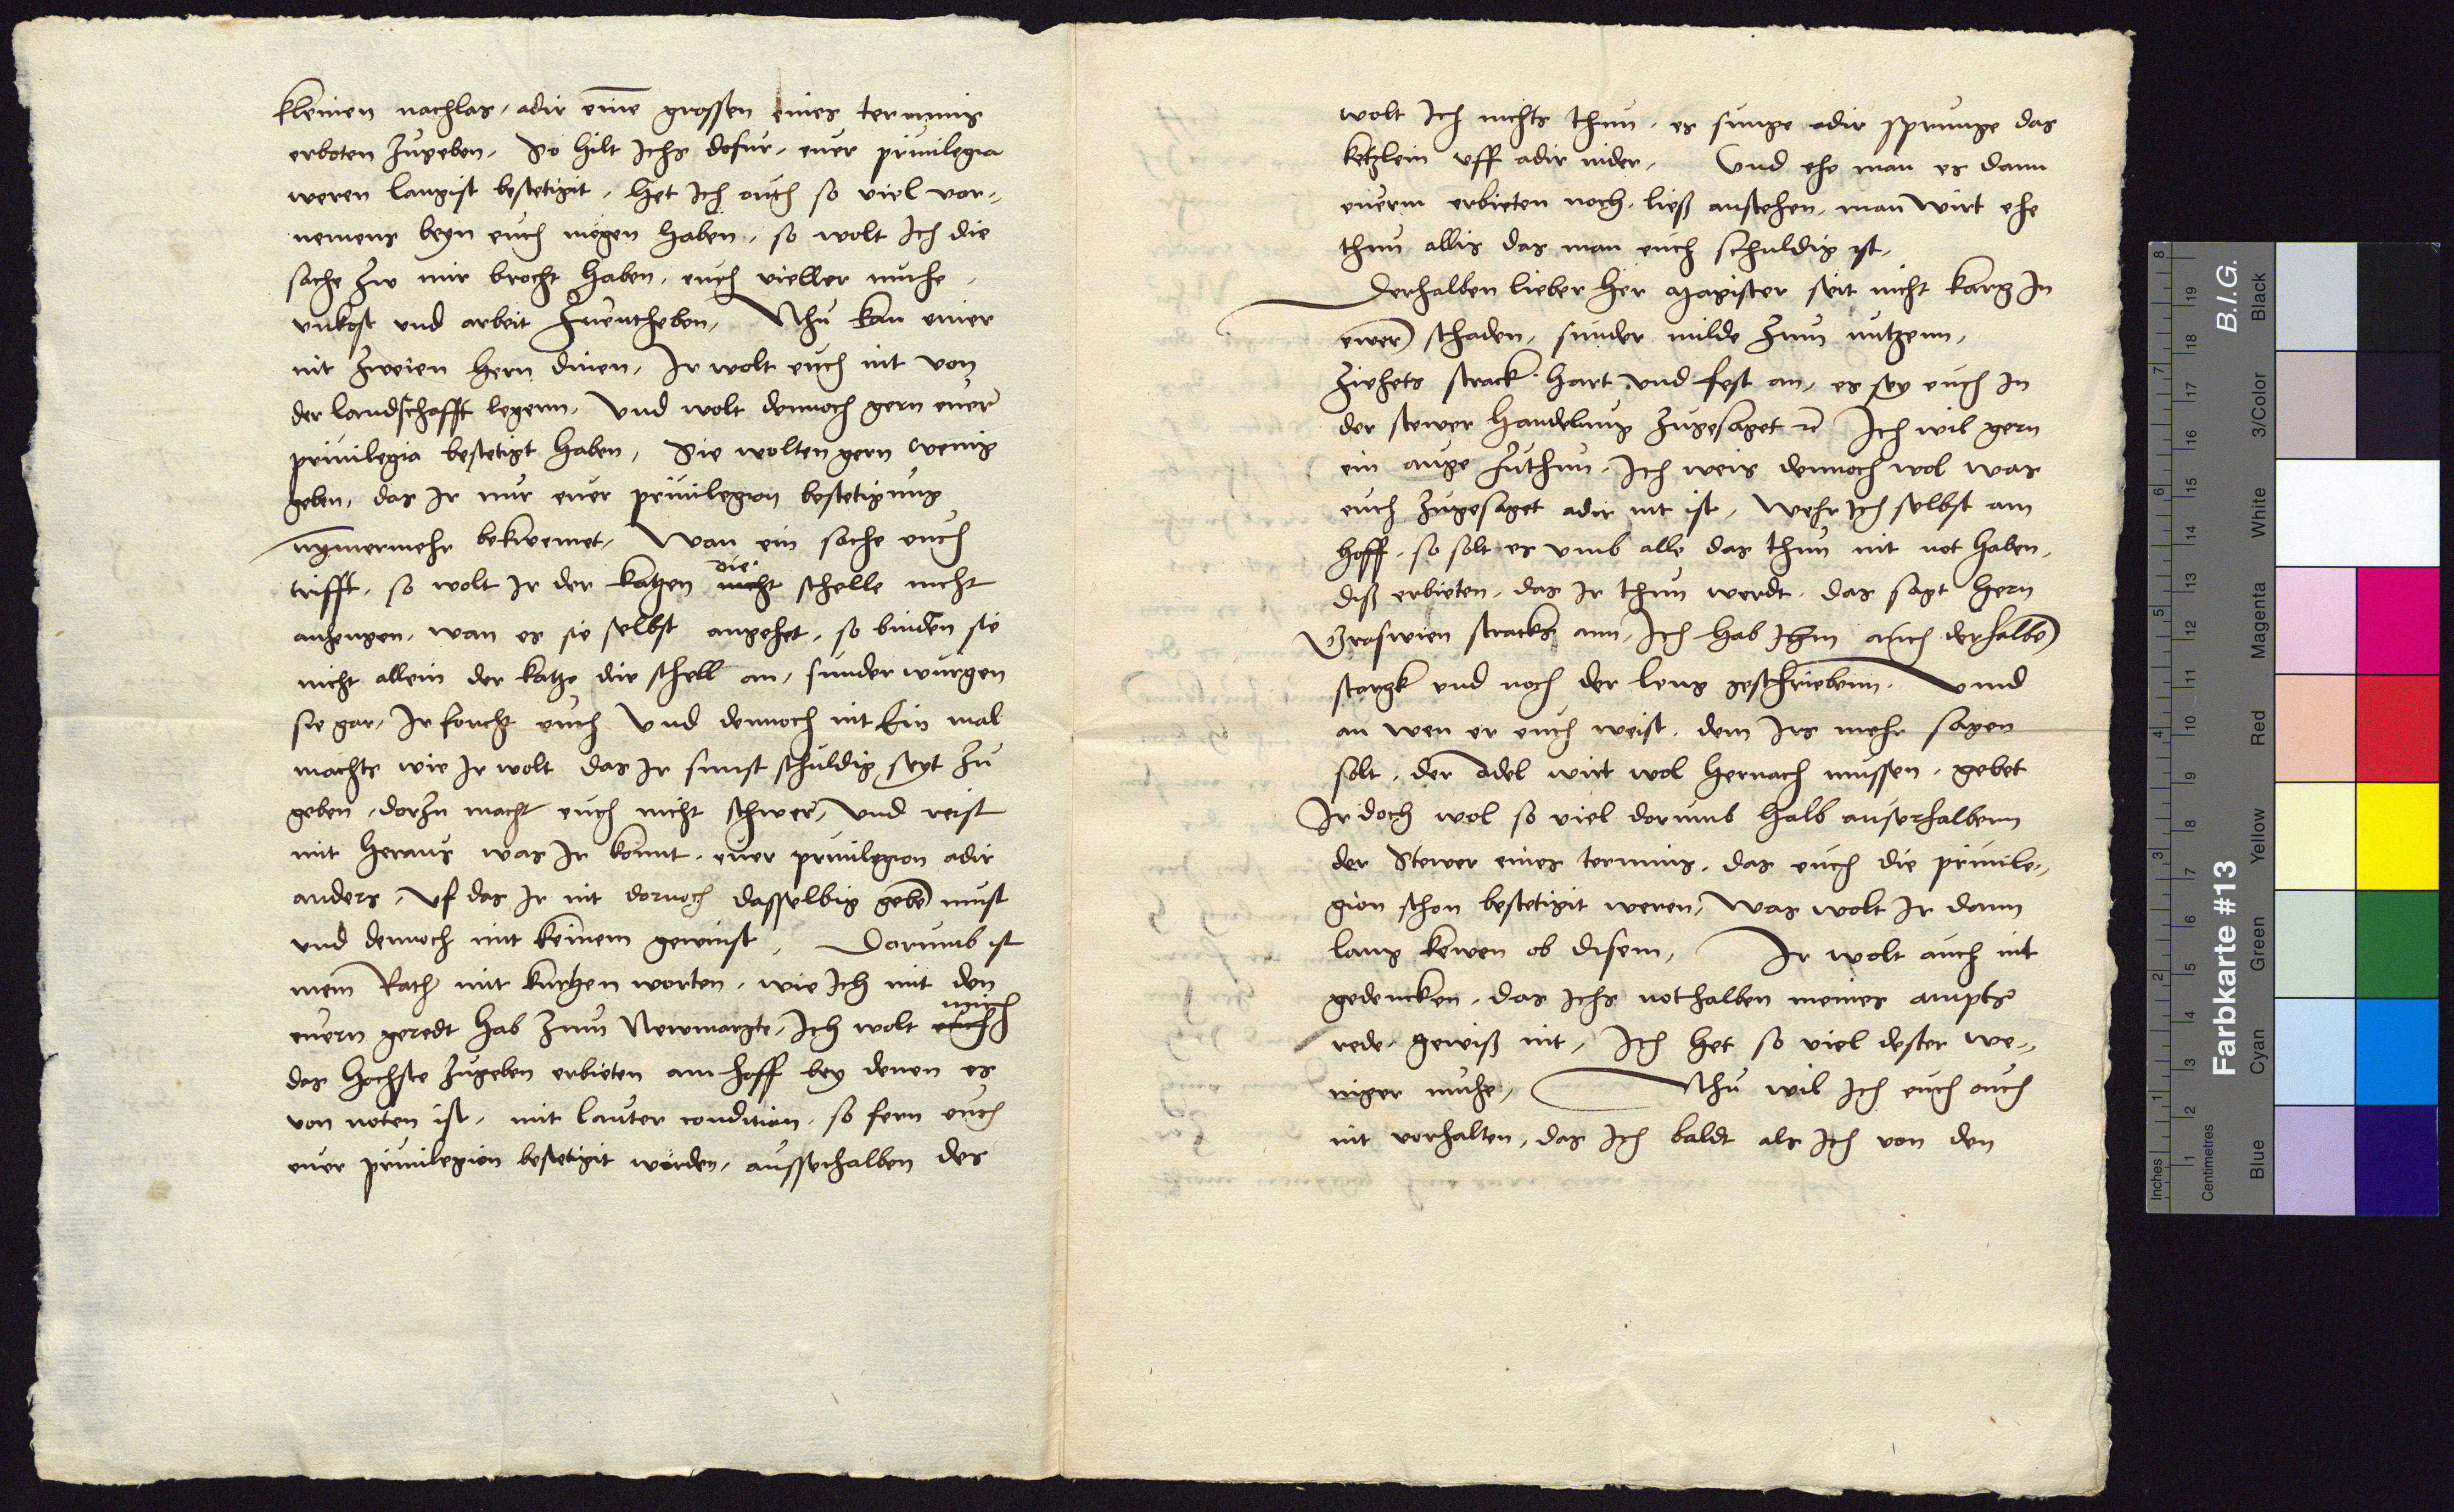 kleinen nachlas, adir eine grossen eines terminis
erboten zugeben, So hilt Ichs dofur, euer priuilegia
weren langist bestetigit, het Ich auch so viel vor-
nemens beyn euch mogen haben, so wolt Ich die
sache zw mir brocht haben, euch vieller muhe,
vnkost vnd arbeit zuentheben, Nhu kan einer
nit zweien hern dinen, Ir wolt euch nit von
der landschafft legenn, Vnd wolt dennoch gern euer
priuilegia bestetigt haben, Sie wolten gern wenig
geben, das Ir nur euer priuilegion bestetigung
nymermehr bekwemet, Wan ein sache euch
trifft, so wolt Ir der katzen nicht die schelle nicht
anhengen, wan es sie selbst angehet, so binden sie
nicht allein der katze die schell an, sunder wurgen
sie gar, Ir forcht euch Vnd dennoch nit Ein mal
machts wie Ir wolt das Ir sunst schuldig seyt zu
geben, dorzu macht euch nicht schwer, Vnd reist
mit heraus was Ir konnt, euer priuilegion adir
anders, Vf das Ir nit dornoch dasselbig gebe must
vnd dennoch mit keinem gewinst, Dorumb ist
mein Rath mit kurtzen worten, wie Ich mit den
euern geredt hab zum Newmargte, Ich wolt euch mich
das hochste zugeben erbieten am hoff bey denen es
von noten ist, mit lauter condition, so fern euch
euer priuilegion bestetigit wurden, ausserhalben des
wolt Ich nichts thun, es sunge adir sprunge das
ketzlein vff adir nider, Vnd ehe man es dann
euerm erbieten noch, ließ anstehen, man wirt ehe
thun allis das man euch schuldig ist,
Derhalben lieber her Magister seit nicht karg In
ewer schaden, sunder milde zum nutzenn,
ziehets strack hart vnd fest an, es sey euch In
der stewer handelung zugesaget etc Ich wil gern
ein auge zuthun, Ich weis dennoch wol was
euch zugesaget adir nit ist, Wehr Ich selbst am
hoff, so solt es vmb alle das thun nit not haben,
diß erbieten, das Ir thun werdt, das sagt hern
Graswien stracks ann, Ich hab Ihm auch derhalbe
stargk vnd noch der leng geschriebenn, Vnnd
an wen er euch weist, dem Irs mehr sagen
solt, der Adel wirt wol hernach mussen, gebet
Ir doch wol so viel dorumb halb auserhalbenn
der Stewer eines terminis, das euch die priuile-
gion schon bestetigit weren, Was wolt Ir dann
lang kewen ob disem, Ir wolt auch nit
gedencken, das Ichs nothalben meines ampts
rede, gewiß nit, Ich het so viel dester we-
niger muhe, Nhu wil Ich euch auch
nit vorhalten, das Ich baldt als Ich von den